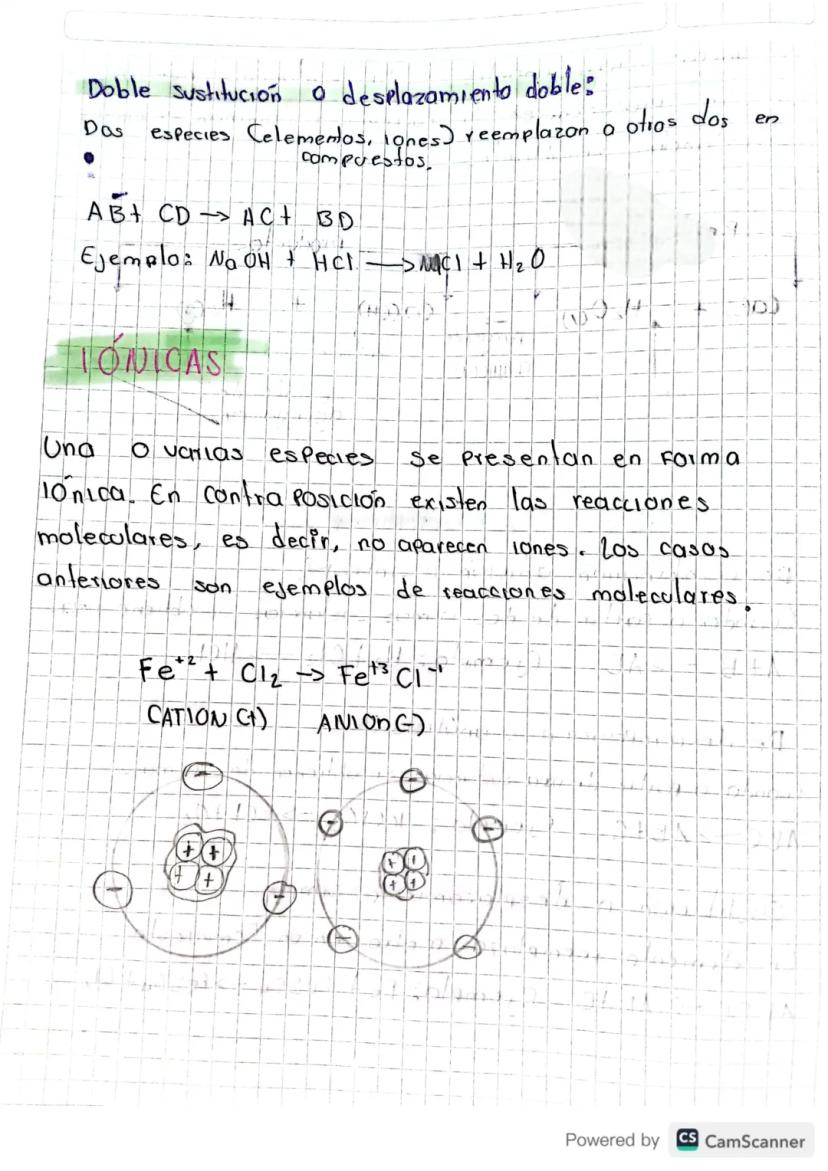 Doble sustitución o desplazamiento doble:
Dos especies (elementos, iones) reemplazan a otros dos en
compuestos.
AB + CD → AC + BD
Ejemplo: NaOH + HCl → + H₂O
IÓNICAS
Una o varias especies se presentan en forma
iónica. En contraposición existen las reacciones
moleculares, es decir, no aparecen iones. Los casos
anteriores son ejemplos de reacciones moleculares.
Fe⁺² + Cl₂ → Fe⁺³ Cl⁻¹
CATION (+) ANION (-)
-
- -
+ +
+ +
- -
-
- -
+ +
+ +
- -
Powered by CS CamScanner